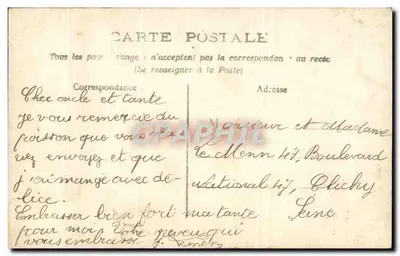 CARTE POSTALE
Tous les pays étrangers n'acceptent pas la correspondance au recto
(Se renseigner à la Poste)
Correspondance
Adresse
Cher oncle et tante
je vous remercie du
poisson que vous m'a
vez envoyez et que
j'ai mangé avec dé-
lice.
Embrasser bien fort ma tante
pour moi Votre neveu qui
vous embrasse
Monsieur et Madame
Le Menn 47, Boulevard
National 47, Clichy
Seine